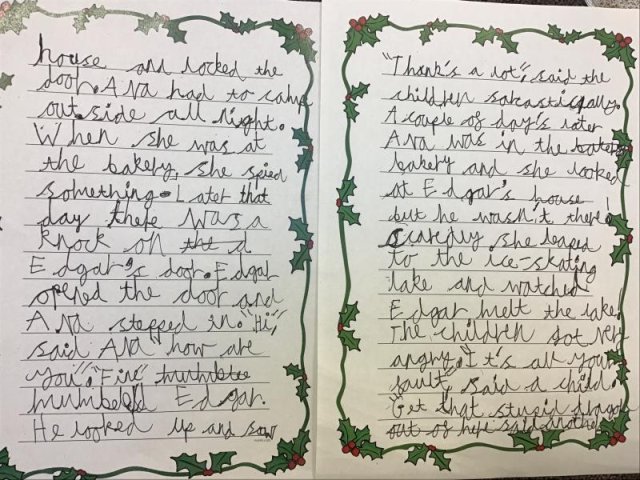 house and locked the
door. Ava had to camp
outside all night.
When she was at
the bakery, she spied
something. Later that
day there was a
knock on the d
Edgar's door. Edgar
opened the door and
Ava stepped in. "Hi",
said Ava how are
you". "Fine" mumble
mumbeld Edgar.
He looked up and saw
"Thank's a lot", said the
children sarcastically.
A couple of day's later
Ava was in the bakery
bakery and she looked
at Edgar's house
but he wasn't there!
she leaped
to the ice-skating
lake and watched
Edgar melt the lake.
The children got very
angry. It's all your
fault, said a child.
"Get that stupid dragon
out of here said another